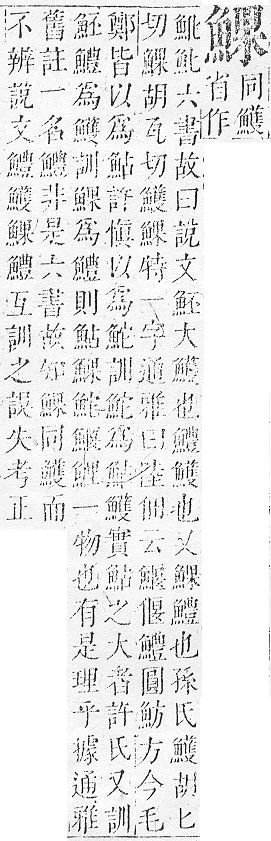 䱻
同鱯
省作
六書故曰說文魾大鱯也鱧鱯也又䱻鱧也孫氏鱯胡匕
切䱻胡瓦切鱯䱻特一字通雅曰陸佃云鰋偃鱧圓魴方今毛
鄭皆以為鮎許慎以為鮀訓鮀為鮎鱯實鮎之大者許氏又訓
魾鱧為鱯訓䱻為鱧則鮎䱻鮀鰋鯉一物也有是理乎據通雅
舊註一名鱧非是六書故知䱻同鱯而
不辨說文鱧鱯䱻鱧互訓之誤失考正